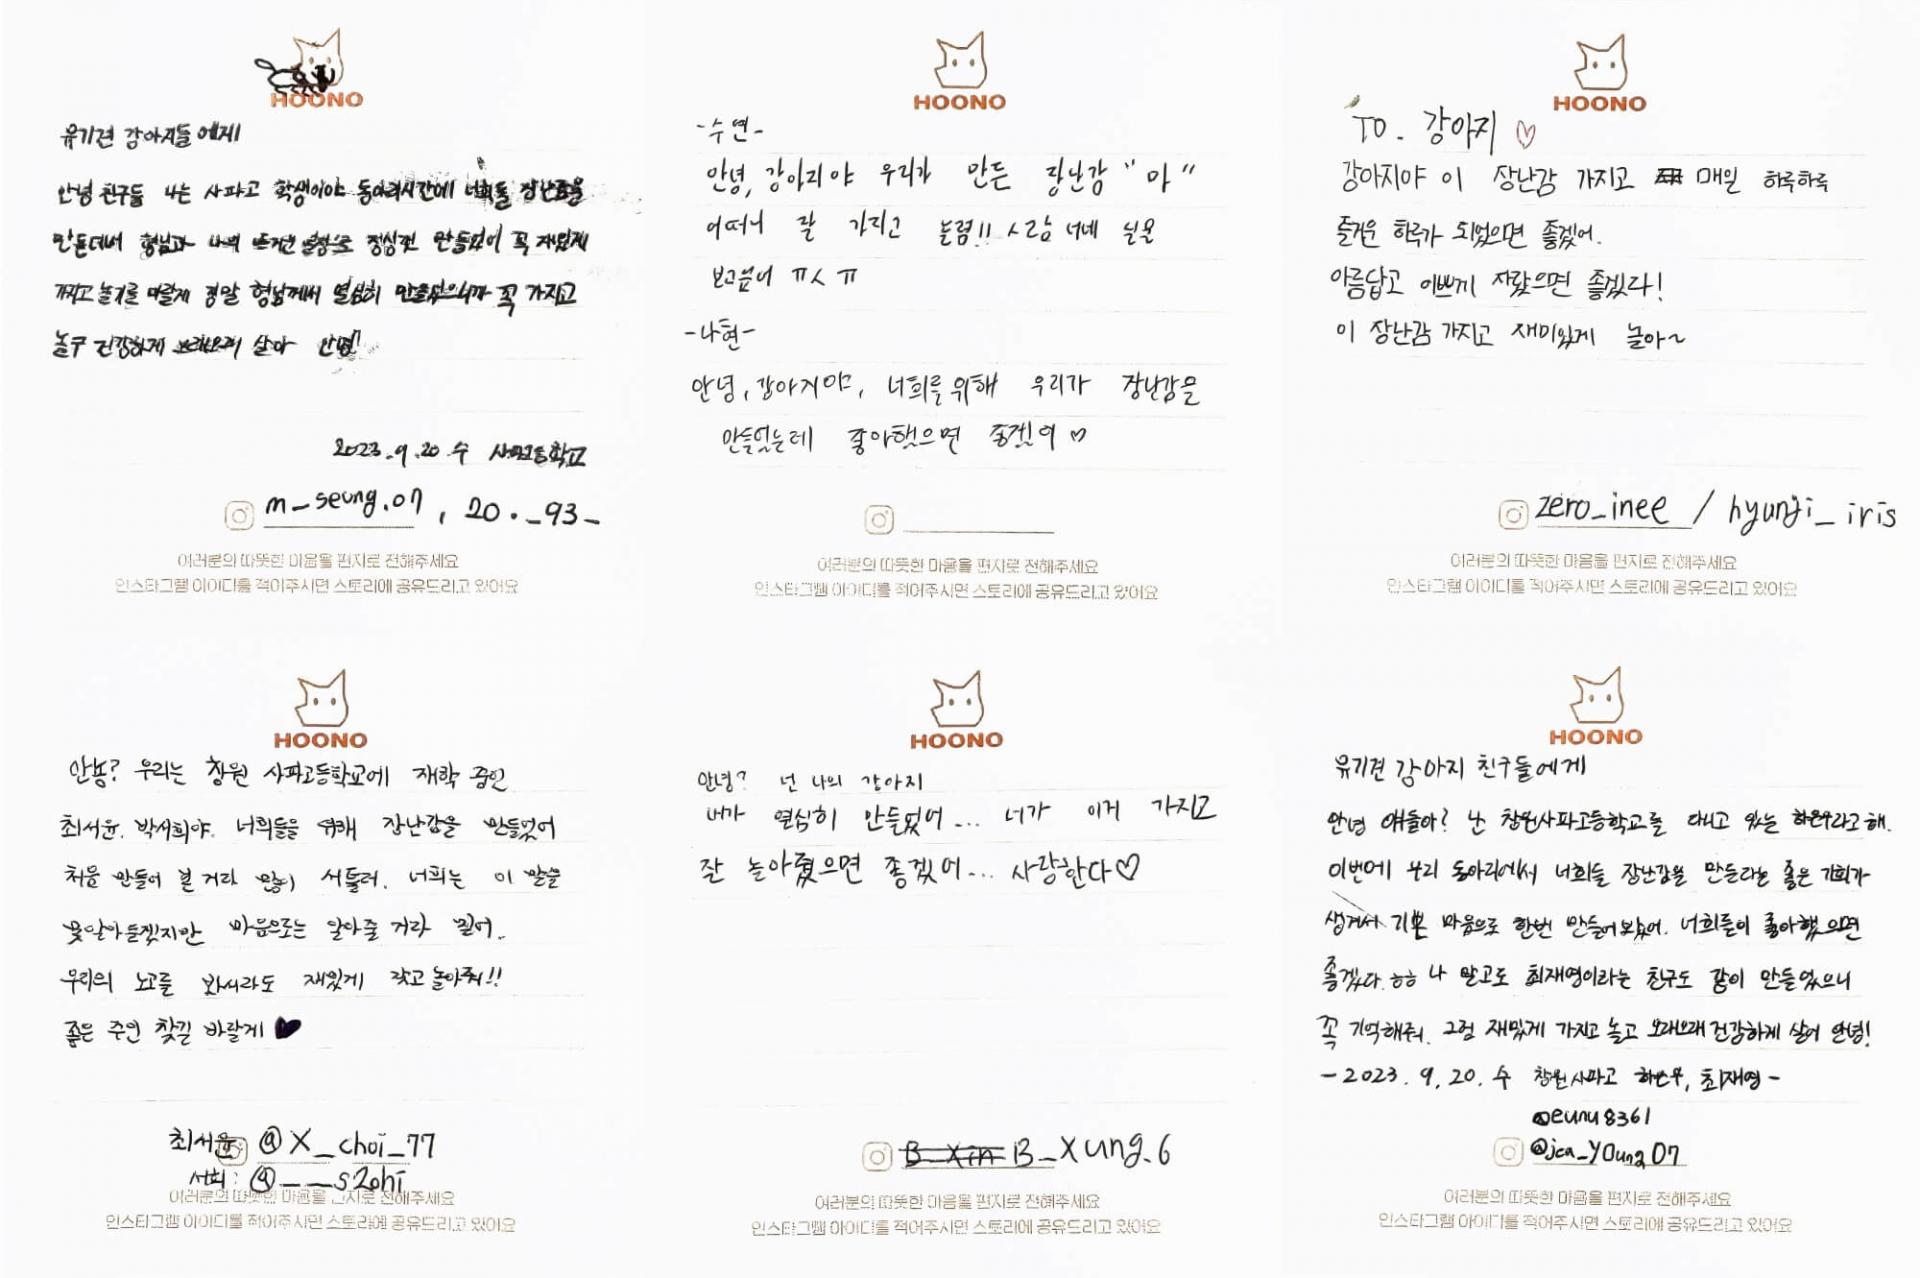 HOONO
유기견 강아지들에게
안녕 친구들 나는 사파고 학생이야 동아리시간에 너희들 장난감을
만든데너 형님과 나의 뜨거운 열정으로 정성껏 만들었어 꼭 재밌게
가지고 놀기를 바랄게 정말 형님께서 열심히 만들었으니까 꼭 가지고
놀구 건강하게 살아 안녕!
2023.9.20.수 사파고등학교
m_seung.07, 20._93_
여러분의 따뜻한 마음을 편지로 전해주세요
인스타그램 아이디를 적어주시면 스토리에 공유드리고 있어요
HOONO
-수연-
안녕, 강아리야 우리가 만든 장난감 "마"
어떠니 잘 가지고 놀렴!! 사람 너네 실은
보고싶어 ㅠㅅㅠ
-나현-
안녕, 강아지야, 너희를 위해 우리가 장난감을
만들었는데 좋아했으면 좋겠어 ♡
여러분의 따뜻한 마음을 편지로 전해주세요
인스타그램 아이디를 적어주시면 스토리에 공유드리고 있어요
HOONO
TO. 강아지 ♡
강아지야 이 장난감 가지고 매일 하루하루
즐거운 하루가 되었으면 좋겠어.
아름답고 이쁘게 자랐으면 좋겠다!
이 장난감 가지고 재미있게 놀아~
zero_inee / hyunji_iris
여러분의 따뜻한 마음을 편지로 전해주세요
인스타그램 아이디를 적어주시면 스토리에 공유드리고 있어요
HOONO
안뇽? 우리는 창원 사파고등학교에 재학 중인
최서윤, 박서희야. 너희들을 위해 장난감을 만들었어
처음 만들어 본 거라 많이 서툴러. 너희는 이 말을
못알아듣겠지만 마음으로는 알아줄 거라 믿어.
우리의 노고를 봐서라도 재밌게 갖고 놀아줘!!
좋은 주인 찾길 바랄게 ♥
최서윤 @X_choi_77
서희: @__s2ohi
여러분의 따뜻한 마음을 편지로 전해주세요
인스타그램 아이디를 적어주시면 스토리에 공유드리고 있어요
HOONO
안녕? 넌 나의 강아지
내가 열심히 만들었어... 너가 이거 가지고
잘 놀아줬으면 좋겠어... 사랑한다♡
B_Xin B_Xung_6
여러분의 따뜻한 마음을 편지로 전해주세요
인스타그램 아이디를 적어주시면 스토리에 공유드리고 있어요
HOONO
유기견 강아지 친구들에게
안녕 얘들아? 난 창원사파고등학교를 다니고 있는 하은우라고해.
이번에 우리 동아리에서 너희들 장난감을 만들라는 좋은 기회가
생겨서 기쁜 마음으로 한번 만들어보았어. 너희들이 좋아했으면
좋겠다ㅎㅎ 나 말고도 최재영이라는 친구도 같이 만들었으니
꼭 기억해줘. 그럼 재밌게 가지고 놀고 오래오래 건강하게 살아 안녕!
-2023.9.20.수 창원사파고 하은우, 최재영-
@eunu8361
@jea_young07
여러분의 따뜻한 마음을 편지로 전해주세요
인스타그램 아이디를 적어주시면 스토리에 공유드리고 있어요